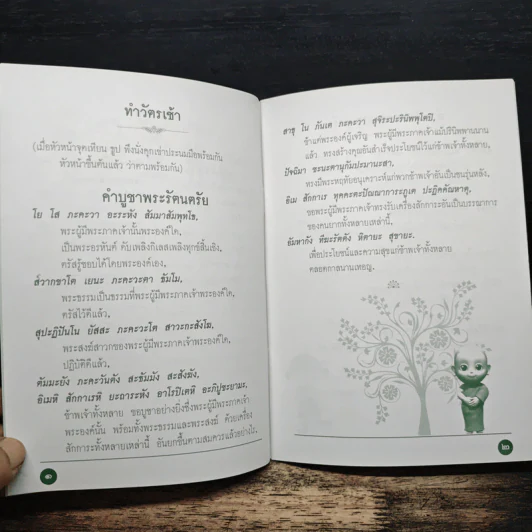 ทำวัตรเช้า
(เมื่อหัวหน้าจุดเทียน ธูป พึงนั่งคุกเข่าประนมมือพร้อมกัน
หัวหน้าขึ้นต้นแล้ว ว่าตามพร้อมกัน)
คำบูชาพระรัตนตรัย
โย โส ภะคะวา อะระหัง สัมมาสัมพุทโธ,
พระผู้มีพระภาคเจ้านั้นพระองค์ใด,
เป็นพระอรหันต์ ดับเพลิงกิเลสเพลิงทุกข์สิ้นเชิง,
ตรัสรู้ชอบได้โดยพระองค์เอง,
ส๎วากขาโต เยนะ ภะคะวะตา ธัมโม,
พระธรรมเป็นธรรมที่พระผู้มีพระภาคเจ้าพระองค์ใด,
ตรัสไว้ดีแล้ว,
สุปะฏิปันโน ยัสสะ ภะคะวะโต สาวะกะสังโฆ,
พระสงฆ์สาวกของพระผู้มีพระภาคเจ้าพระองค์ใด,
ปฏิบัติดีแล้ว,
ตัมมะยัง ภะคะวันตัง สะธัมมัง สะสังฆัง,
อิเมหิ สักกาเรหิ ยะถาระหัง อาโรปิเตหิ อะภิปูชะยามะ,
ข้าพเจ้าทั้งหลาย ขอบูชาอย่างยิ่งซึ่งพระผู้มีพระภาคเจ้า
พระองค์นั้น พร้อมทั้งพระธรรมและพระสงฆ์ ด้วยเครื่อง
สักการะทั้งหลายเหล่านี้ อันยกขึ้นตามสมควรแล้วอย่างไร,
๑
สาธุ โน ภันเต ภะคะวา สุจิระปะรินิพพุโตปิ,
ข้าแต่พระองค์ผู้เจริญ พระผู้มีพระภาคเจ้าแม้ปรินิพพานนาน
แล้ว ทรงสร้างคุณอันสำเร็จประโยชน์ไว้แก่ข้าพเจ้าทั้งหลาย,
ปัจฉิมา ชะนะตานุกัมปะมานะสา,
ทรงมีพระหฤทัยอนุเคราะห์แก่พวกข้าพเจ้าอันเป็นชนรุ่นหลัง,
อิเม สักกาเร ทุคคะตะปัณณาการะภูเต ปะฏิคคัณหาตุ,
ขอพระผู้มีพระภาคเจ้าทรงรับเครื่องสักการะอันเป็นบรรณาการ
ของคนยากทั้งหลายเหล่านี้,
อัมหากัง ทีฆะรัตตัง หิตายะ สุขายะ,
เพื่อประโยชน์และความสุขแก่ข้าพเจ้าทั้งหลาย
ตลอดกาลนานเทอญ.
๒